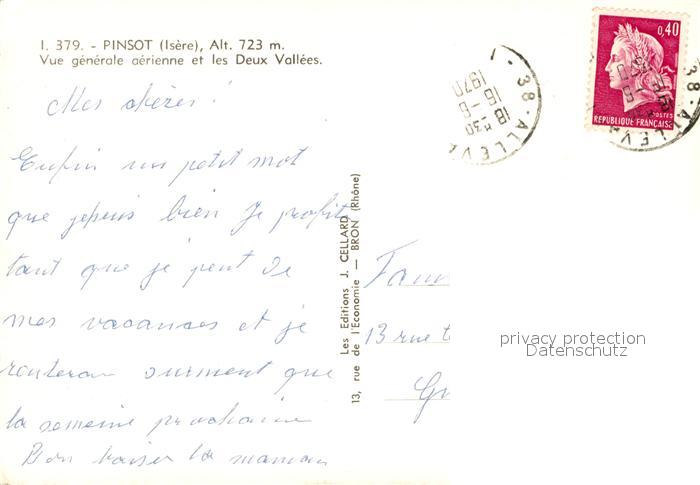 I. 379. - PINSOT (Isère), Alt. 723 m.
Vue générale aérienne et les Deux Vallées.
Mes chères !
Enfin un petit mot
que je suis bien je profite
tant que je peut de
mes vacances et je
surement que
la semaine prochaine
Bon baiser la maman
Les Editions J. CELLARD
13, rue de l'Economie — BRON (Rhône)
38 - ALLEV
18 H 30
16 - 6
1970
0,40
POSTES
REPUBLIQUE FRANÇAISE
38 - ALLEV
Fam
13 rue
privacy protection
Datenschutz